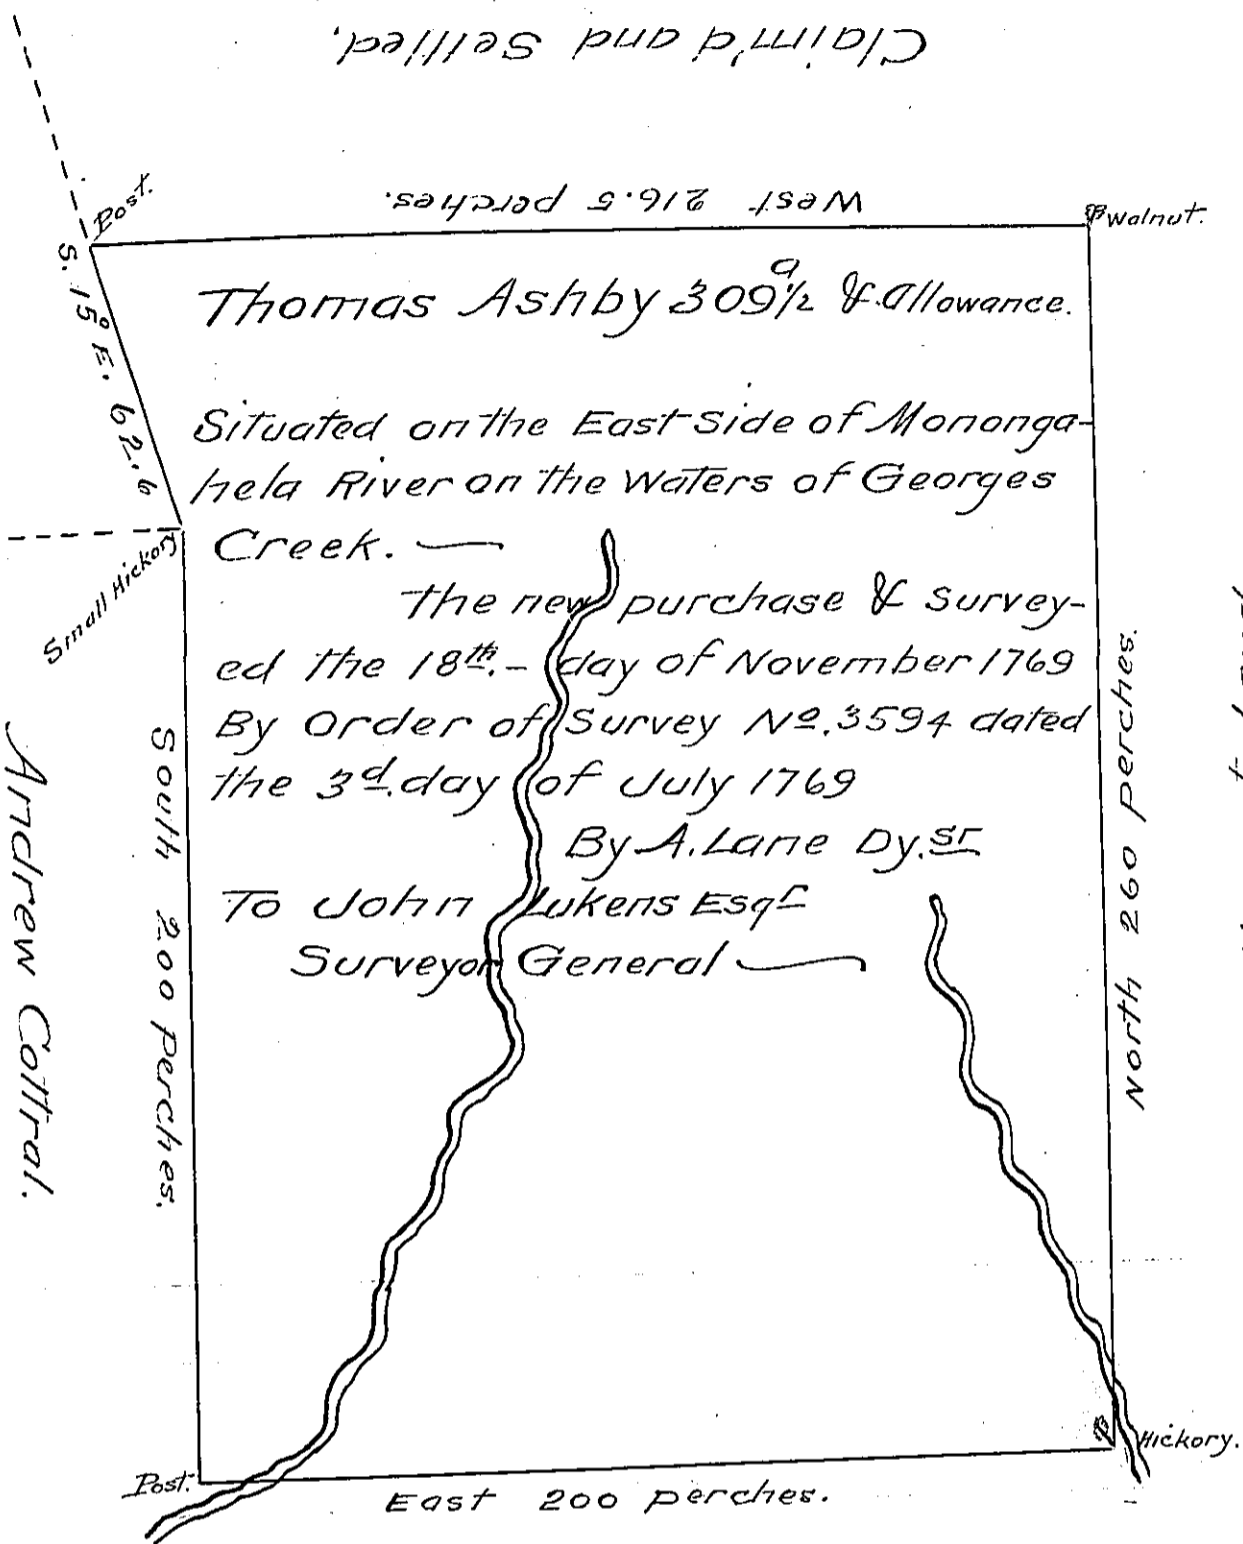 Claim'd and Settled.
West 216.5 perches.
Post.
Walnut.
S. 15° E. 62.6
Thomas Ashby 309ᵃ1/2 & Allowance.
Situated on the East Side of Mononga-
hela River on the Waters of Georges
Creek.
Small Hickory
the new purchase & Survey-
ed the 18th. day of November 1769
By Order of Survey No. 3594 dated
the 3d. day of July 1769
By A. Lane Dy. Sr
To John Lukens Esqr
Surveyor General
South 200 perches.
Andrew Cottral.
North 260 perches.
Post.
Hickory.
East 200 perches.